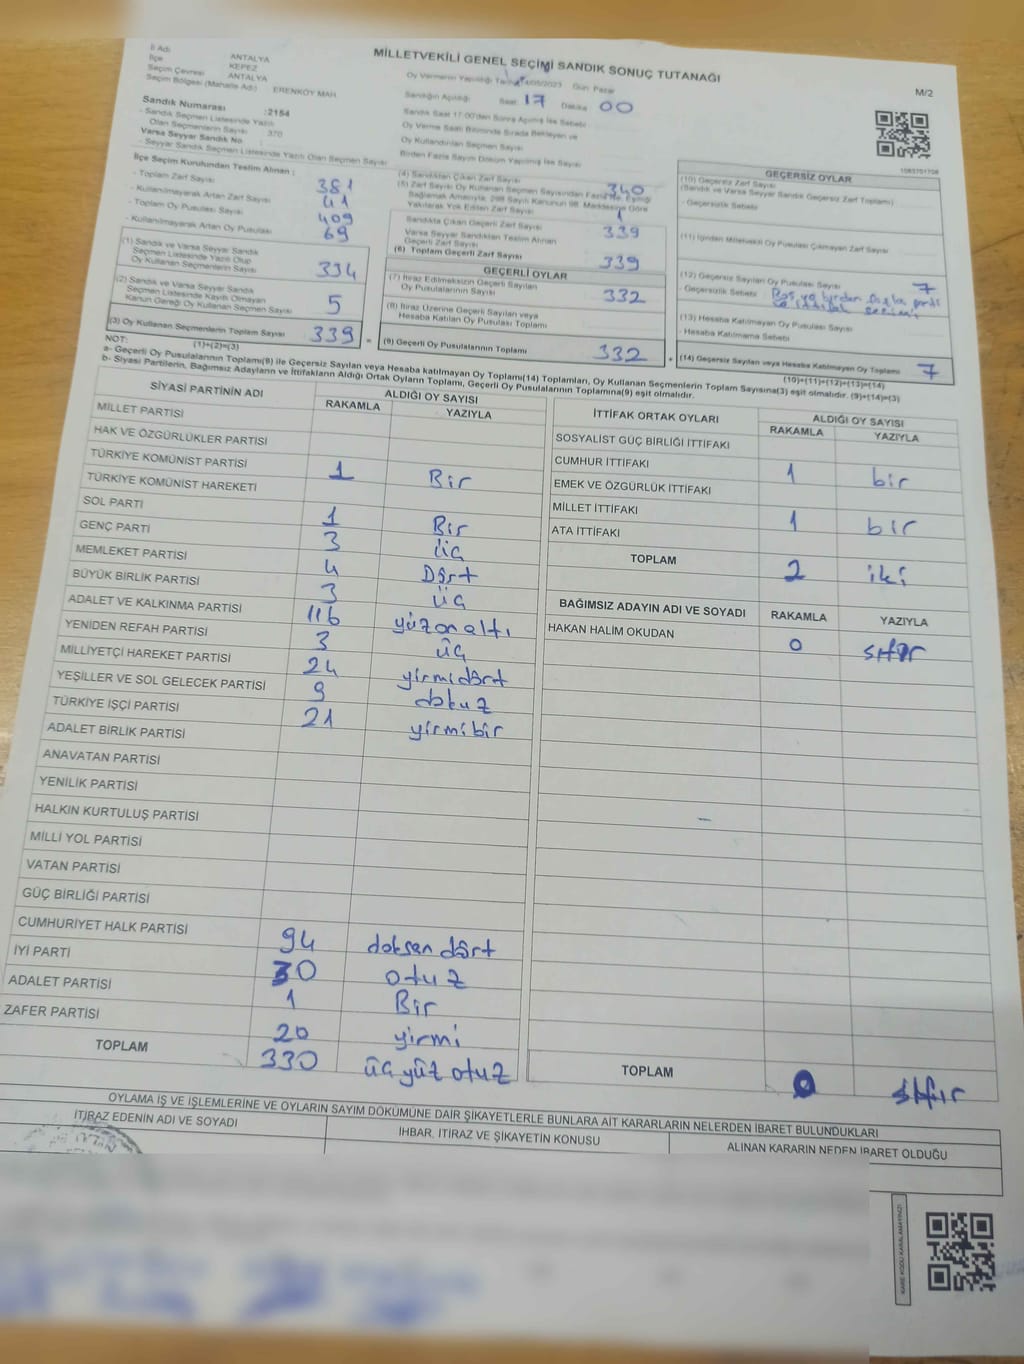 MİLLETVEKİLİ GENEL SEÇİMİ SANDIK SONUÇ TUTANAĞI
M/2
İl Adı ANTALYA
İlçe KEPEZ
Seçim Çevresi ANTALYA
Seçim Bölgesi (Mahalle Adı) ERENKÖY MAH.
Oy Vermenin Yapıldığı Gün Pazar
Sandığın Açıldığı Saat 17 Dakika 00
Sandık Saat 17:00'den Sonra Açılmış İse Sebebi
Oy Verme Saati Bitiminde Sırada Bekleyen ve
Oy Kullandırılan Seçmen Sayısı
Birden Fazla Sayım Döküm Yapılmış İse Sayısı
Sandık Numarası :2154
- Sandık Seçmen Listesinde Yazılı
Olan Seçmenlerin Sayısı 370
Varsa Seyyar Sandık No
- Seyyar Sandık Seçmen Listesinde Yazılı Olan Seçmen Sayısı
İlçe Seçim Kurulundan Teslim Alınan :
- Toplam Zarf Sayısı 381
- Kullanılmayarak Artan Zarf Sayısı 41
- Toplam Oy Pusulası Sayısı 409
- Kullanılmayarak Artan Oy Pusulası 69
(1) Sandık ve Varsa Seyyar Sandık
Seçmen Listesinde Yazılı Olup
Oy Kullanan Seçmenlerin Sayısı 334
(2) Sandık ve Varsa Seyyar Sandık
Seçmen Listesinde Kayıtlı Olmayan
Kanun Gereği Oy Kullanan Seçmen Sayısı 5
(3) Oy Kullanan Seçmenlerin Toplam Sayısı 339 =
(1)+(2)=(3)
(4) Sandıktan Çıkan Zarf Sayısı 340
(5) Zarf Sayısı Oy Kullanan Seçmen Sayısından Fazla İse, Eşitliği
Sağlamak Amacıyla, 298 Sayılı Kanunun 98. Maddesine Göre
Yakılarak Yok Edilen Zarf Sayısı 1
Sandıkta Çıkan Geçerli Zarf Sayısı 339
Varsa Seyyar Sandıktan Teslim Alınan
Geçerli Zarf Sayısı
(6) Toplam Geçerli Zarf Sayısı 339
GEÇERLİ OYLAR
(7) İtiraz Edilmeksizin Geçerli Sayılan
Oy Pusulalarının Sayısı 332
(8) İtiraz Üzerine Geçerli Sayılan veya
Hesaba Katılan Oy Pusulası Toplamı
(9) Geçerli Oy Pusulalarının Toplamı 332 +
1083701706
GEÇERSİZ OYLAR
(10) Geçersiz Zarf Sayısı
(Sandık ve Varsa Seyyar Sandık Geçersiz Zarf Toplamı)
- Geçersizlik Sebebi
(11) İçinden Milletvekili Oy Pusulası Çıkmayan Zarf Sayısı
(12) Geçersiz Sayılan Oy Pusulası Sayısı 7
- Geçersizlik Sebebi Boş ve birden fazla parti
(13) Hesaba Katılmayan Oy Pusulası Sayısı
- Hesaba Katılmama Sebebi
(14) Geçersiz Sayılan veya Hesaba Katılmayan Oy Toplamı 7
(10)+(11)+(12)+(13)=(14)
NOT:
a- Geçerli Oy Pusulalarının Toplamı(9) ile Geçersiz Sayılan veya Hesaba katılmayan Oy Toplamı(14) Toplamları, Oy Kullanan Seçmenlerin Toplam Sayısına(3) eşit olmalıdır. (9)+(14)=(3)
b- Siyasi Partilerin, Bağımsız Adayların ve İttifakların Aldığı Ortak Oyların Toplamı, Geçerli Oy Pusulalarının Toplamına(9) eşit olmalıdır.
SİYASİ PARTİNİN ADI ALDIĞI OY SAYISI
RAKAMLA YAZIYLA
MİLLET PARTİSİ
HAK VE ÖZGÜRLÜKLER PARTİSİ
TÜRKİYE KOMÜNİST PARTİSİ 1 Bir
TÜRKİYE KOMÜNİST HAREKETİ
SOL PARTİ 1 Bir
GENÇ PARTİ 3 üç
MEMLEKET PARTİSİ 4 Dört
BÜYÜK BİRLİK PARTİSİ 3 üç
ADALET VE KALKINMA PARTİSİ 116 yüzonaltı
YENİDEN REFAH PARTİSİ 3 üç
MİLLİYETÇİ HAREKET PARTİSİ 24 yirmidört
YEŞİLLER VE SOL GELECEK PARTİSİ 9 dokuz
TÜRKİYE İŞÇİ PARTİSİ 21 yirmibir
ADALET BİRLİK PARTİSİ
ANAVATAN PARTİSİ
YENİLİK PARTİSİ
HALKIN KURTULUŞ PARTİSİ
MİLLİ YOL PARTİSİ
VATAN PARTİSİ
GÜÇ BİRLİĞİ PARTİSİ
CUMHURİYET HALK PARTİSİ 94 doksan dört
İYİ PARTİ 30 otuz
ADALET PARTİSİ 1 Bir
ZAFER PARTİSİ 20 yirmi
TOPLAM 330 üç yüz otuz
İTTİFAK ORTAK OYLARI ALDIĞI OY SAYISI
RAKAMLA YAZIYLA
SOSYALİST GÜÇ BİRLİĞİ İTTİFAKI
CUMHUR İTTİFAKI 1 bir
EMEK VE ÖZGÜRLÜK İTTİFAKI
MİLLET İTTİFAKI 1 bir
ATA İTTİFAKI
TOPLAM 2 iki
BAĞIMSIZ ADAYIN ADI VE SOYADI RAKAMLA YAZIYLA
HAKAN HALİM OKUDAN 0 sıfır
TOPLAM 0 sıfır
OYLAMA İŞ VE İŞLEMLERİNE VE OYLARIN SAYIM DÖKÜMÜNE DAİR ŞİKAYETLERLE BUNLARA AİT KARARLARIN NELERDEN İBARET BULUNDUKLARI
İTİRAZ EDENİN ADI VE SOYADI İHBAR, İTİRAZ VE ŞİKAYETİN KONUSU ALINAN KARARIN NEDEN İBARET OLDUĞU
KARE KODU KARALAMAYINIZ!